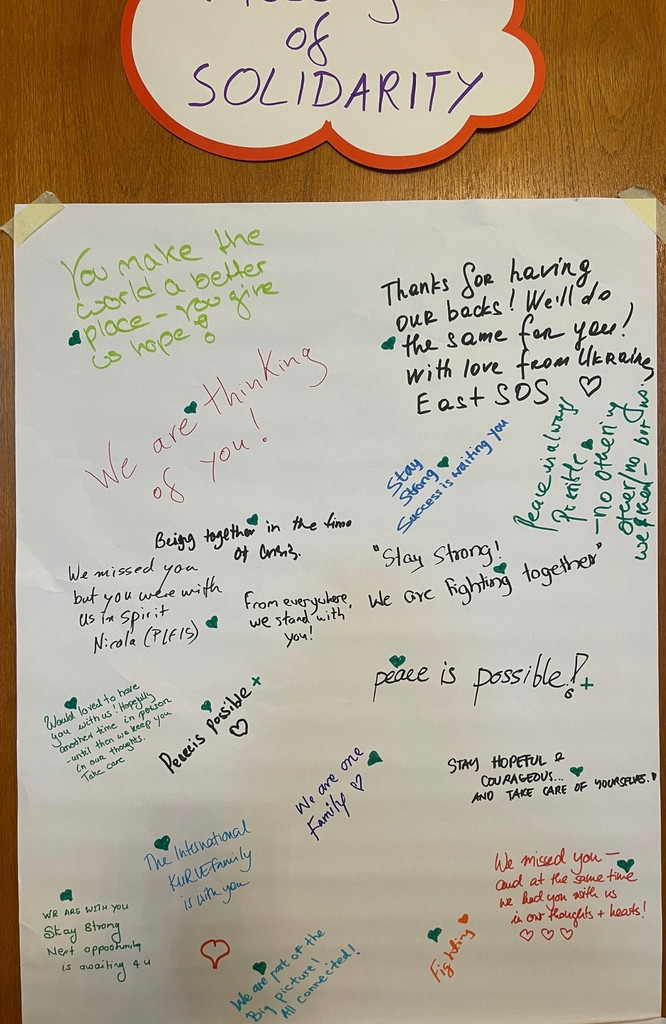 of
SOLIDARITY
You make the
world a better
place - you give
us hope!
Thanks for having
our backs! We'll do
the same for you!
With love from Ukraine,
East SOS
We are thinking
of you!
Stay
Strong
Success is waiting you
Peace is always
Possible
- no othering
other/no but no.
we
Being together in the time
of crisis.
We missed you
but you were with
us in spirit
Nicola (PLFIS)
From everywhere,
we stand with
you!
"Stay Strong!
We are fighting together"
peace is possible!
Would loved to have
you with us! Hopefully
another time in person
- until then we keep you
in our thoughts.
Take care
Peace is possible
We are one
Family
STAY HOPEFUL &
COURAGEOUS...
AND TAKE CARE OF YOURSELVES."
The International
KURVEFamily
is with you
We missed you -
and at the same time
we had you with us
in our thoughts + hearts!
WE ARE WITH YOU
Stay Strong
Next oppoortunity
is awaiting 4 u
We are part of the
Big picture!
All connected!
Fighting